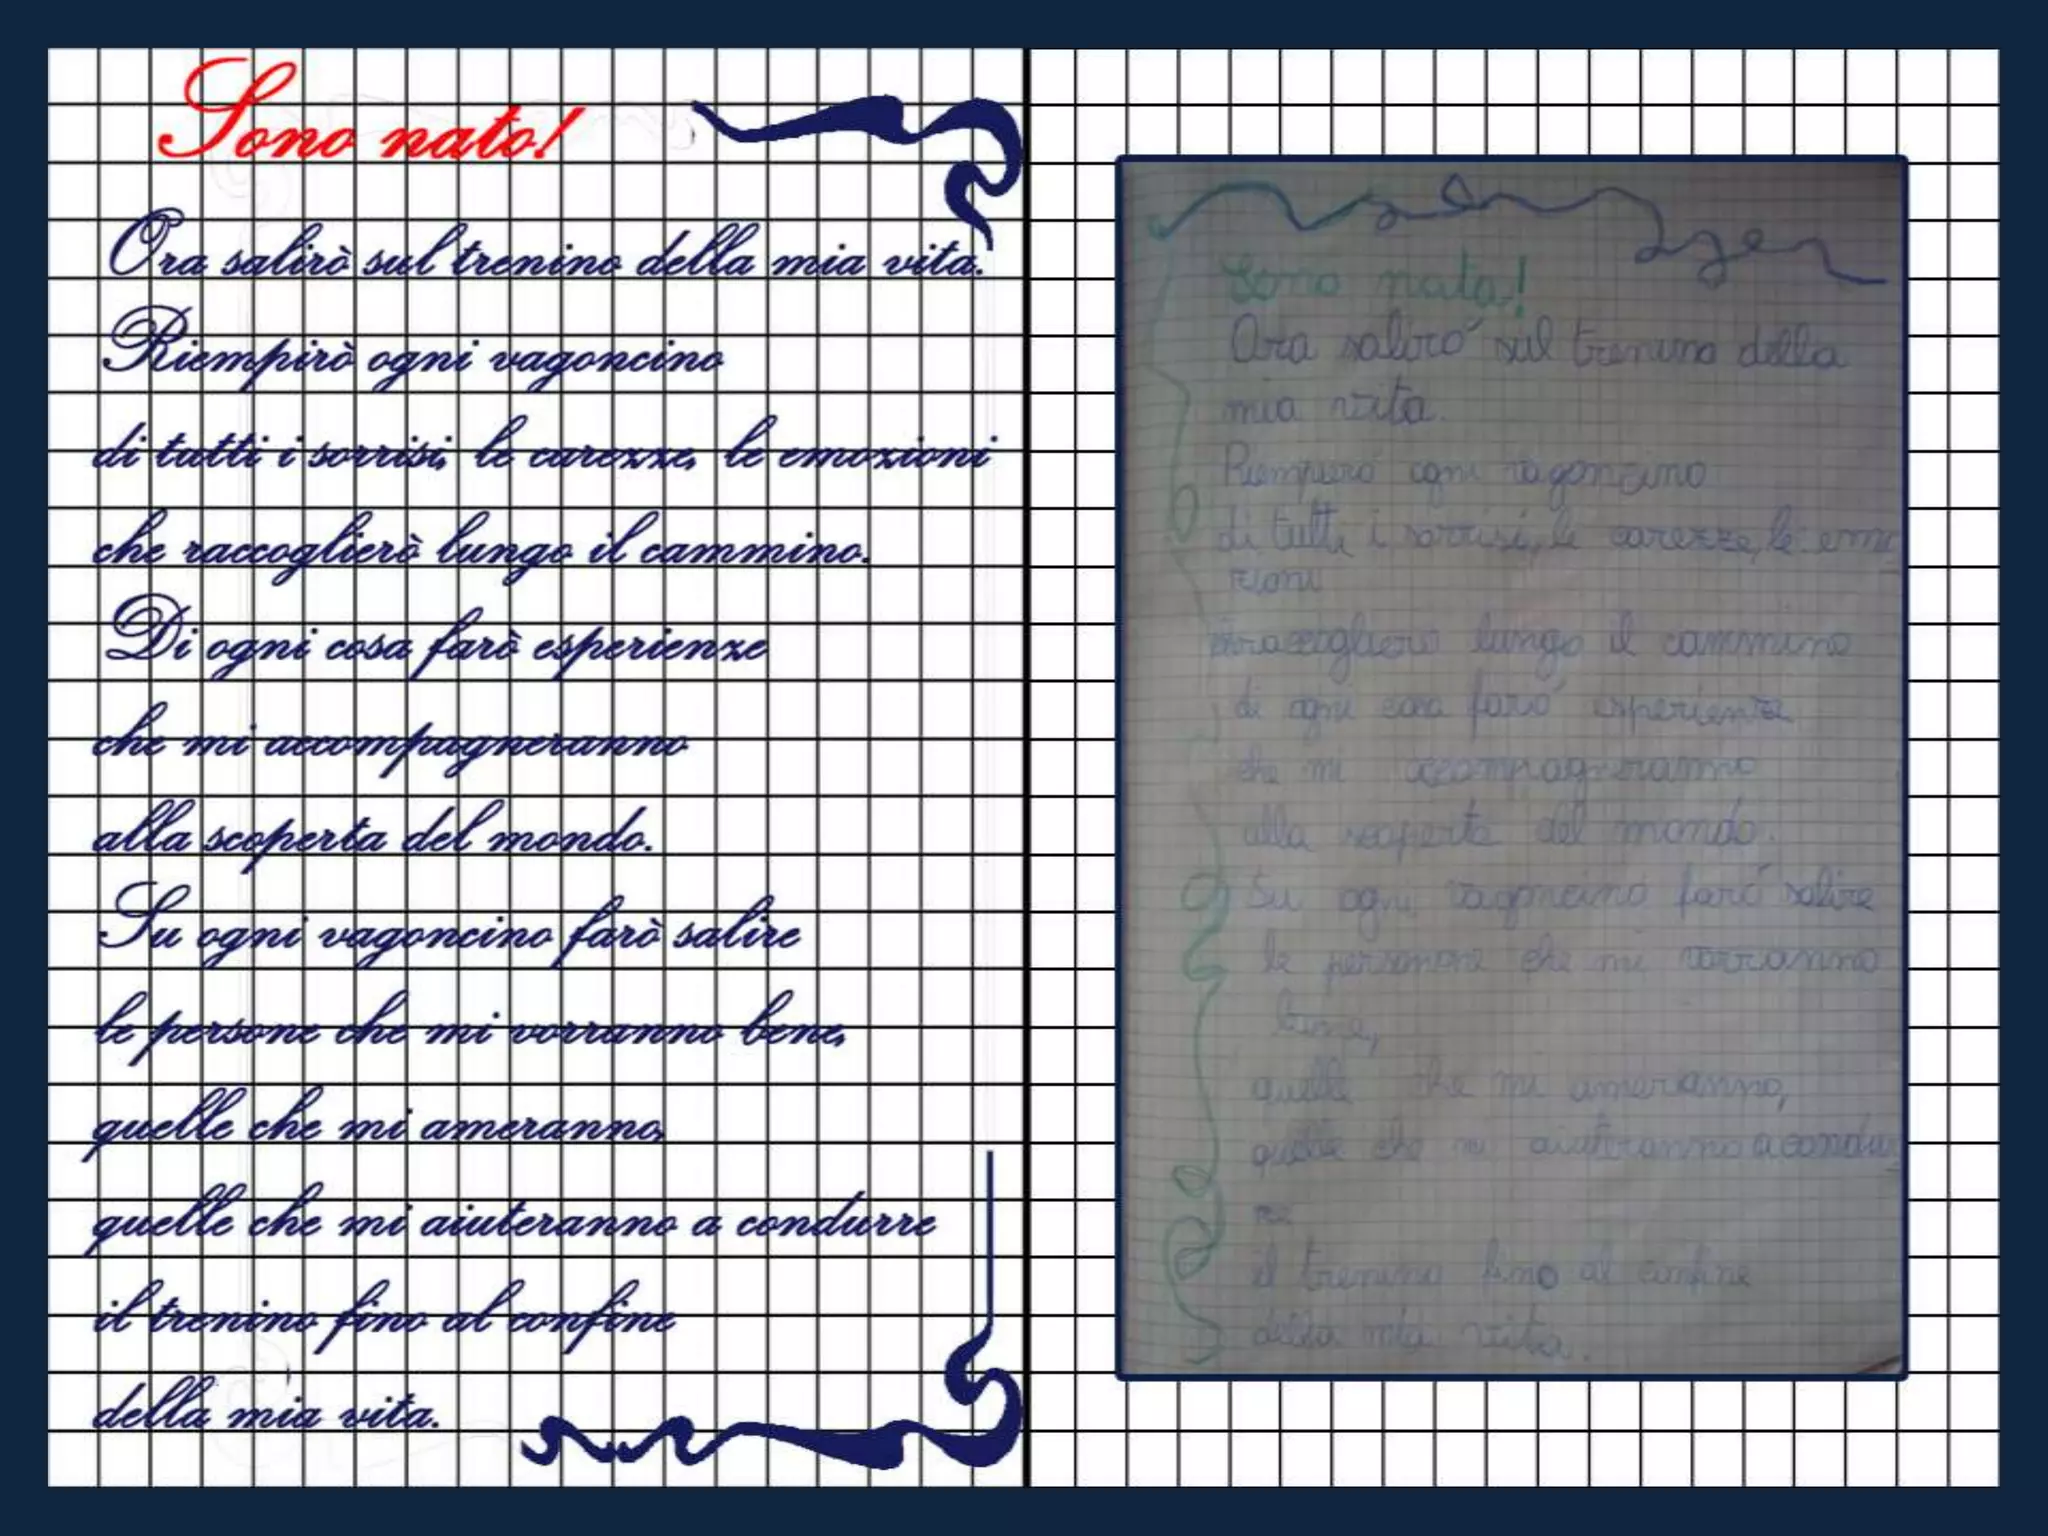 Sono nato!
Ora salirò sul trenino della mia vita.
Riempirò ogni vagoncino
di tutti i sorrisi, le carezze, le emozioni
che raccoglierò lungo il cammino.
Di ogni cosa farò esperienze
che mi accompagneranno
alla scoperta del mondo.
Su ogni vagoncino farò salire
le persone che mi vorranno bene,
quelle che mi ameranno,
quelle che mi aiuteranno a condurre
il trenino fino al confine
della mia vita.
Sono nato!
Ora saliró sul trenino della
mia vita.
Riempiró ogni vagoncino
di tutti i sorrisi, le carezze, le emo
zioni
raccoglieró lungo il cammino
di ogni cosa faró esperienze
che mi accompagneranno
alla scoperta del mondo.
Su ogni vagoncino faró salire
le persone che mi vorranno
bene,
quelle che mi ameranno,
quelle che mi aiuteranno a condur
re
il trenino fino al confine
della mia vita.